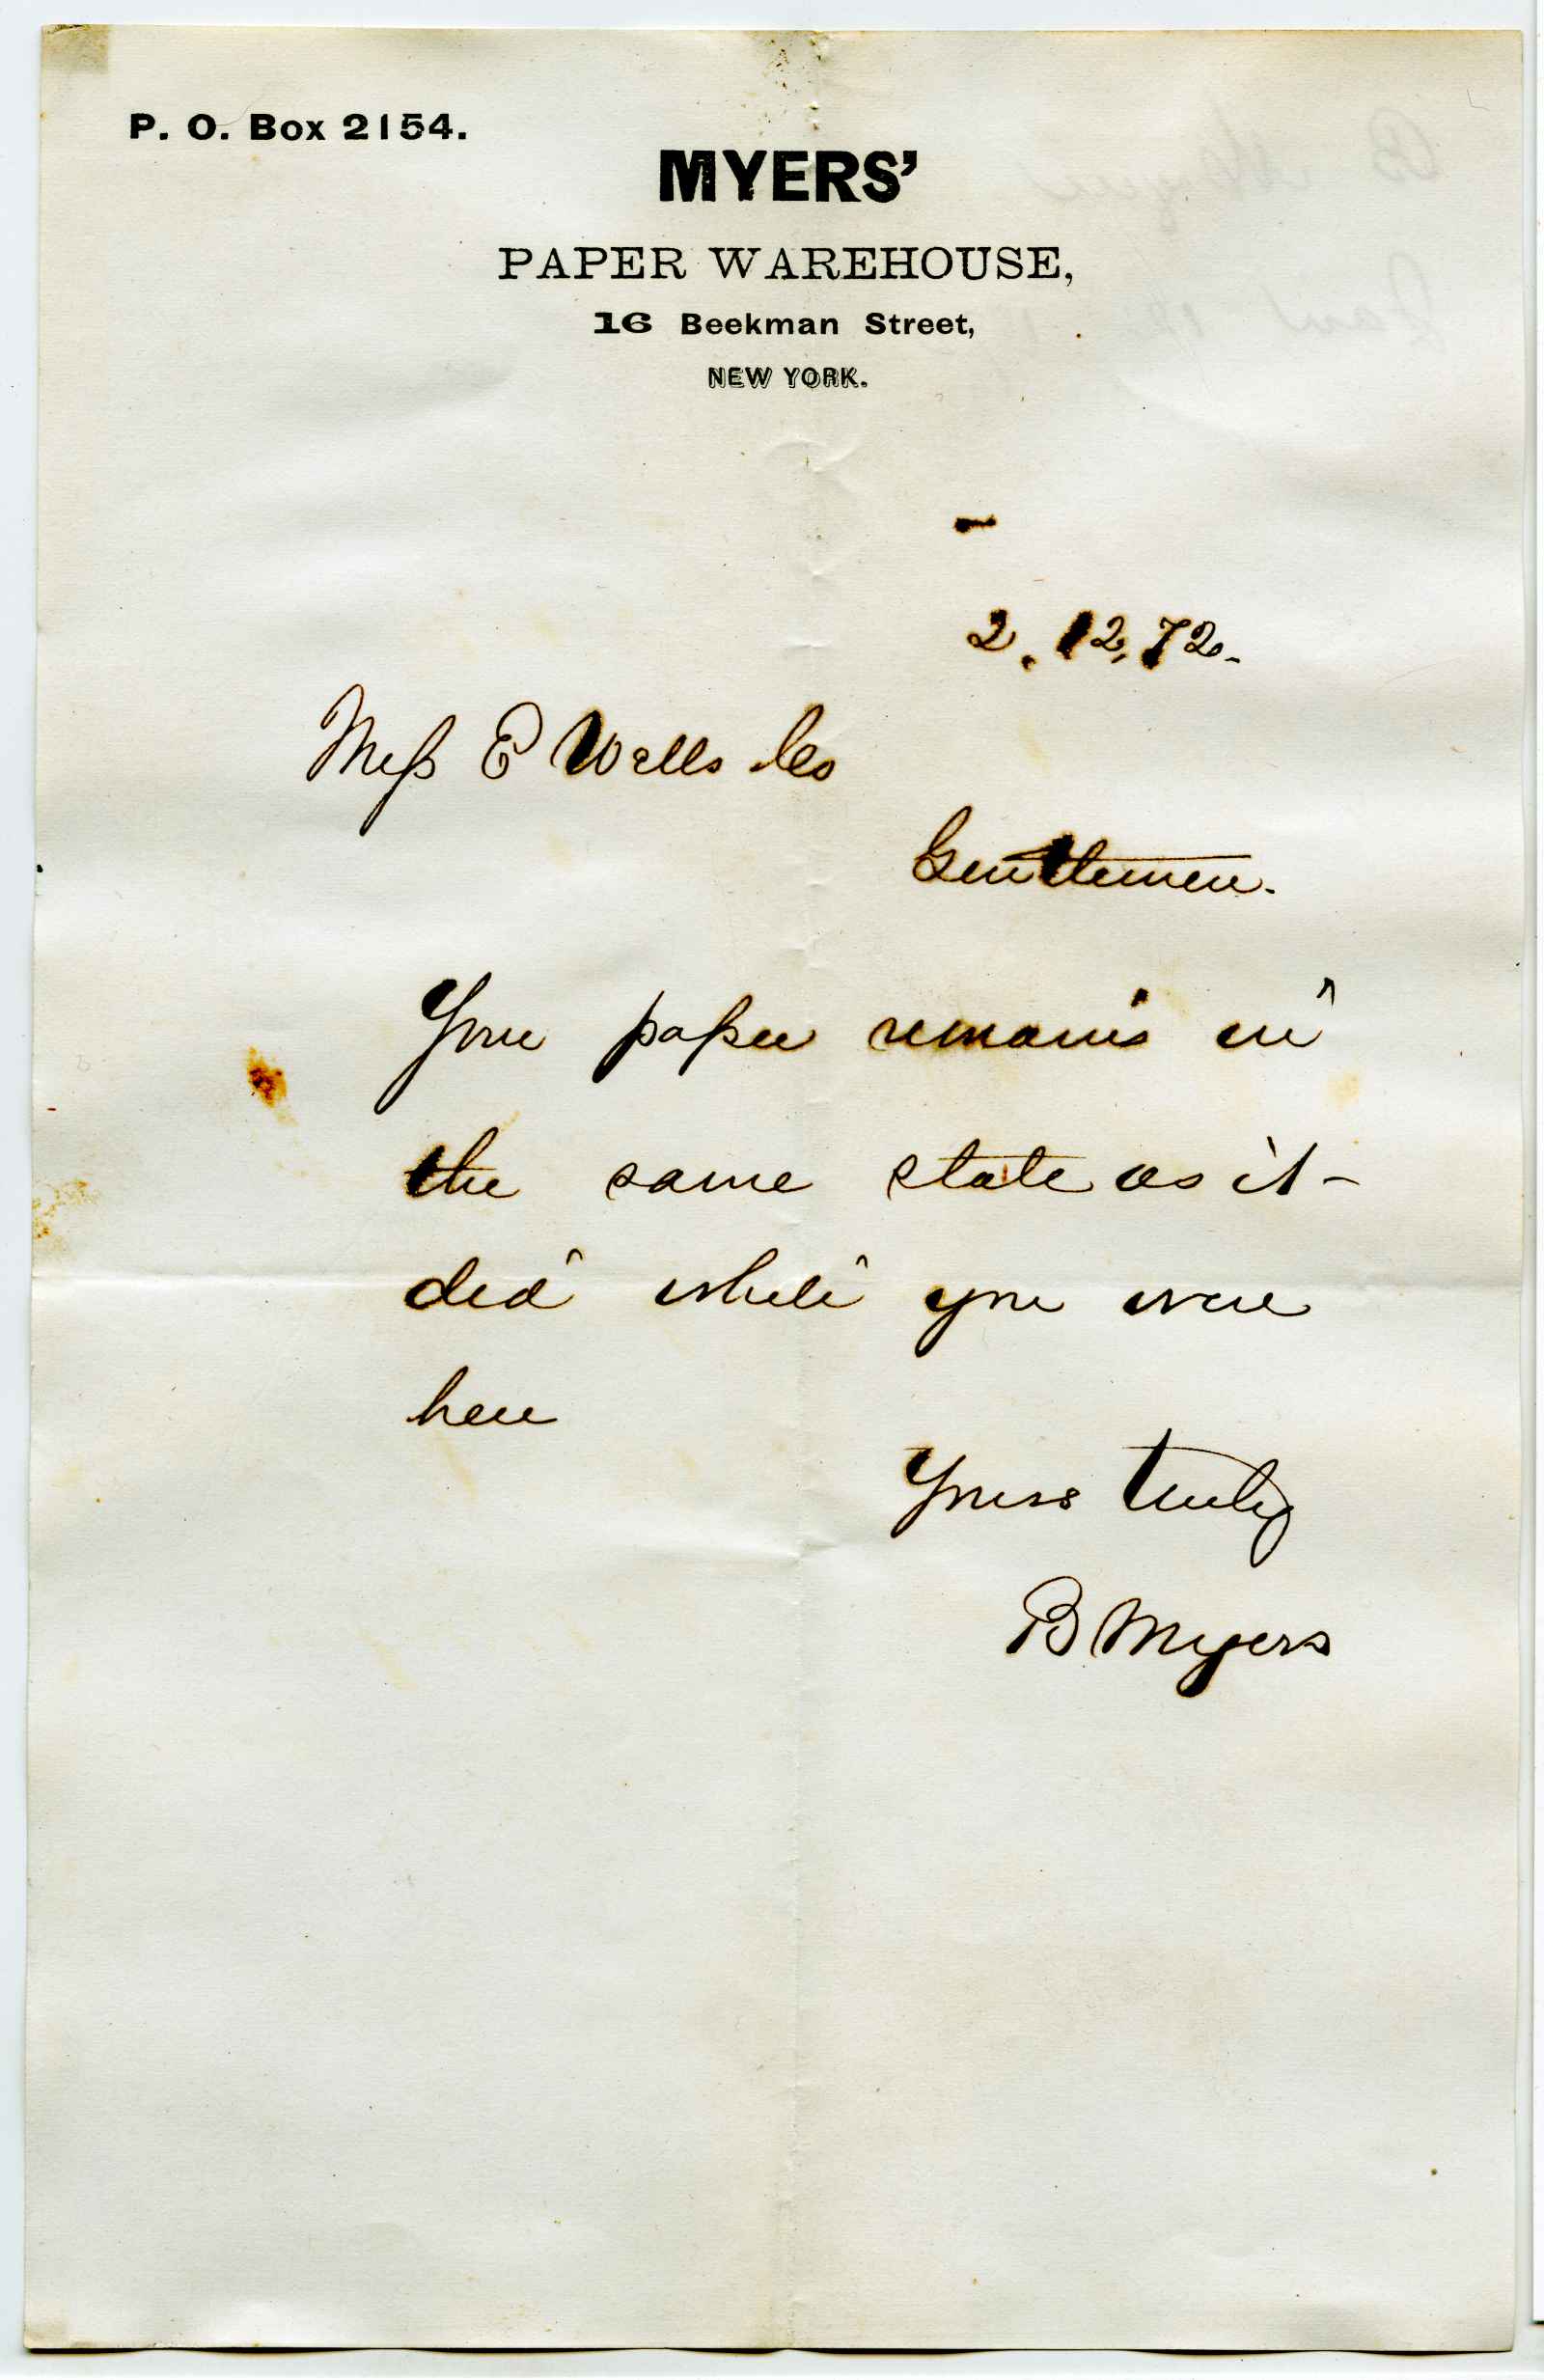 P. O. Box 2154.
MYERS'
PAPER WAREHOUSE,
16 Beekman Street,
NEW YORK.
2. 12, 72.
Mess E Wells Co
Gentlemen.
Your paper remains in
the same state as it-
did while you were
here
Yours truly
B Myers